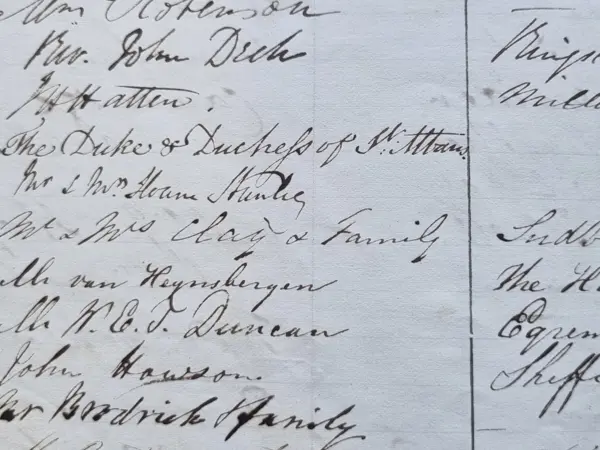 Robinson
Rev. John Deck
The Duke & Duchess of St. Albans
Mr & Mrs Stanley
Mr & Mrs Clay & Family
van Heynsbergen
W. E. T. Duncan
John Howson
Mr Brodrick & family
Kings
Mill
Sudb
The H
Egrem
Sheffi